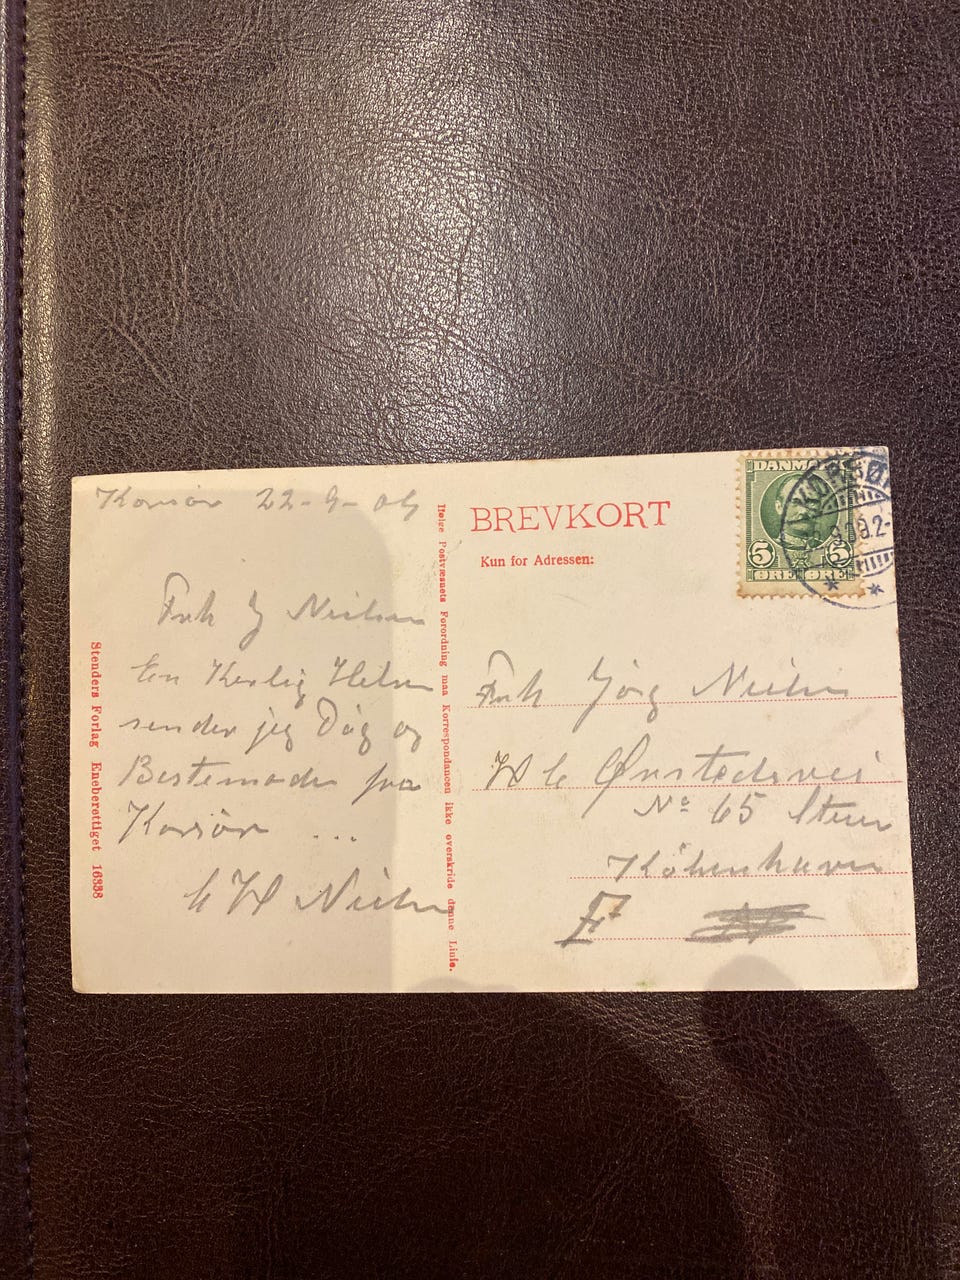 Korsör 22-9-09
Frk J Nielsen
En Kerlig Helsen
sender jeg Dig og
Bestemoder fra
Korsör ...
C H Nielsen
Stenders Forlag Eneberettiget 16338
Ifølge Postvæsnets Forordning maa Korrespondancen ikke overskride denne Linie.
BREVKORT
Kun for Adressen:
DANMARK
5 5
ØRE ØRE
KORSØR
Frk Jörg Nielsen
H C Ørstedsvei
No 65 Stuen
Köbenhavn
F